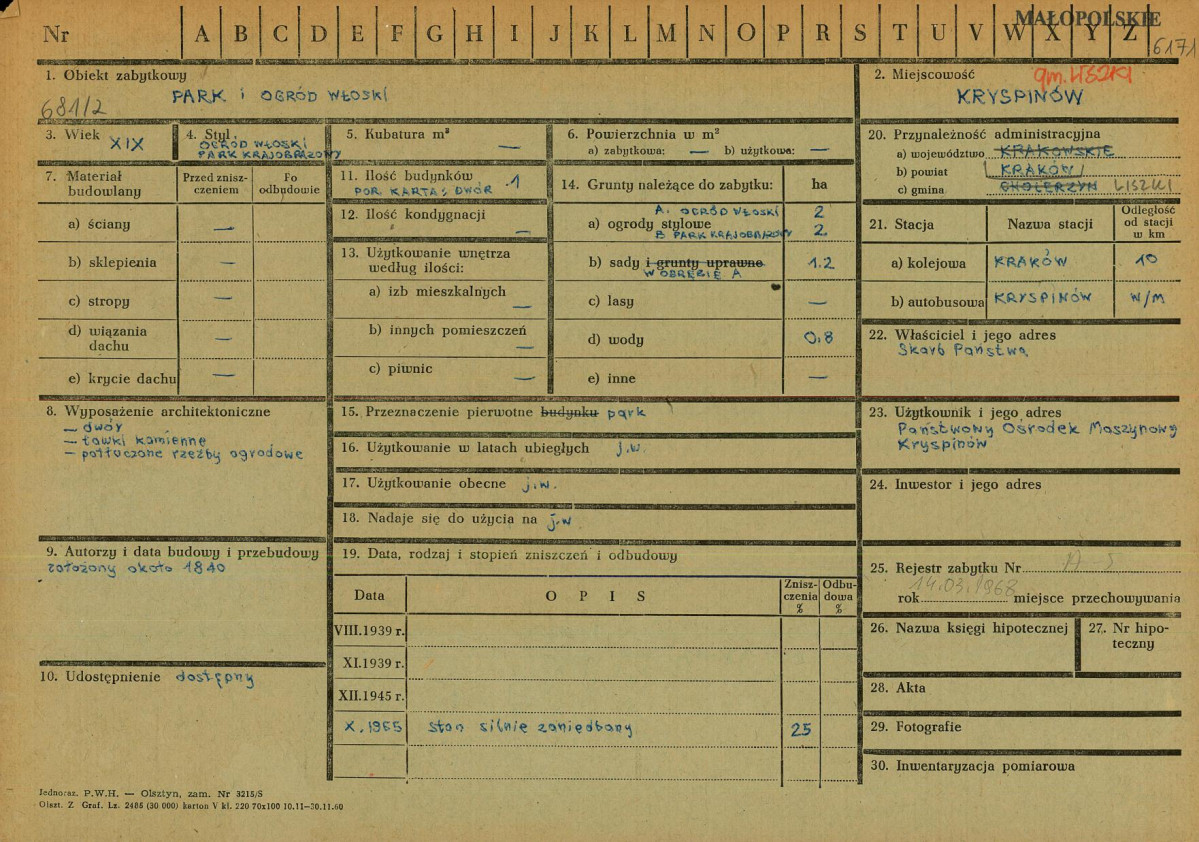 MAŁOPOLSKIE
Nr A B C D E F G H I J K L M N O P R S T U V W X Y Z
6171
1. Obiekt zabytkowy
681/2
PARK i OGRÓD WŁOSKI
2. Miejscowość
gm. LISZKI
KRYSPINÓW
3. Wiek XIX
4. Styl.
OGRÓD WŁOSKI
PARK KRAJOBRAZOWY
5. Kubatura m³ —
6. Powierzchnia w m²
a) zabytkowa: — b) użytkowa: —
20. Przynależność administracyjna
a) województwo KRAKOWSKIE
b) powiat KRAKÓW
c) gmina CHOLERZYN LISZKI
7. Materiał budowlany
Przed zniszczeniem
Po odbudowie
a) ściany —
b) sklepienia —
c) stropy —
d) wiązania dachu —
e) krycie dachu —
11. Ilość budynków .1
POR. KARTA: DWÓR
12. Ilość kondygnacji —
13. Użytkowanie wnętrza według ilości:
a) izb mieszkalnych —
b) innych pomieszczeń —
c) piwnic —
14. Grunty należące do zabytku: ha
A. OGRÓD WŁOSKI 2
a) ogrody stylowe
B PARK KRAJOBRAZOWY 2
b) sady i grunty uprawne 1.2
W OBRĘBIE A
c) lasy —
d) wody 0,8
e) inne —
21. Stacja Nazwa stacji Odległość od stacji w km
a) kolejowa KRAKÓW 10
b) autobusowa KRYSPINÓW w/m
22. Właściciel i jego adres
Skarb Państwa
8. Wyposażenie architektoniczne
— dwór
— ławki kamienne
— potłuczone rzeźby ogrodowe
15. Przeznaczenie pierwotne budynku park
16. Użytkowanie w latach ubiegłych j.w.
17. Użytkowanie obecne j.w.
18. Nadaje się do użycia na j.w
23. Użytkownik i jego adres
Państwowy Ośrodek Maszynowy
Kryspinów
24. Inwestor i jego adres
9. Autorzy i data budowy i przebudowy
założony około 1840
10. Udostępnienie dostępny
19. Data, rodzaj i stopień zniszczeń i odbudowy
Data OPIS Zniszczenia % Odbudowa %
VIII.1939 r.
XI.1939 r.
XII.1945 r.
X.1965 stan silnie zaniedbany 25
25. Rejestr zabytku Nr
rok 14.03.1968 miejsce przechowywania
26. Nazwa księgi hipotecznej
27. Nr hipoteczny
28. Akta
29. Fotografie
30. Inwentaryzacja pomiarowa
Jednoraz. P.W.H. — Olsztyn, zam. Nr 3215/S
Olszt. Z Graf. Lz. 2485 (30 000) karton V kl. 220 70x100 10.11—30.11.60